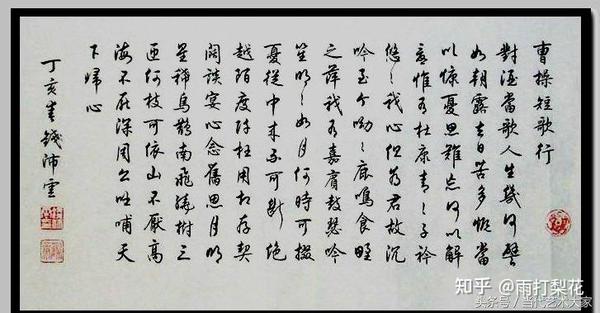 曹操短歌行
對酒當歌人生幾何譬
如朝露去日苦多慨當
以慷憂思難忘何以解
憂惟有杜康青〻子衿
悠〻我心但為君故沉
吟至今呦〻鹿鳴食野
之苹我有嘉賓鼓瑟吹
笙明〻如月何時可掇
憂從中來不可斷絕
越陌度阡枉用相存契
闊談宴心念舊恩月明
星稀烏鵲南飛繞樹三
匝何枝可依山不厭高
海不厭深周公吐哺天
下歸心
丁亥錢沛雲
知乎 @雨打梨花
头条号/当代艺术大家